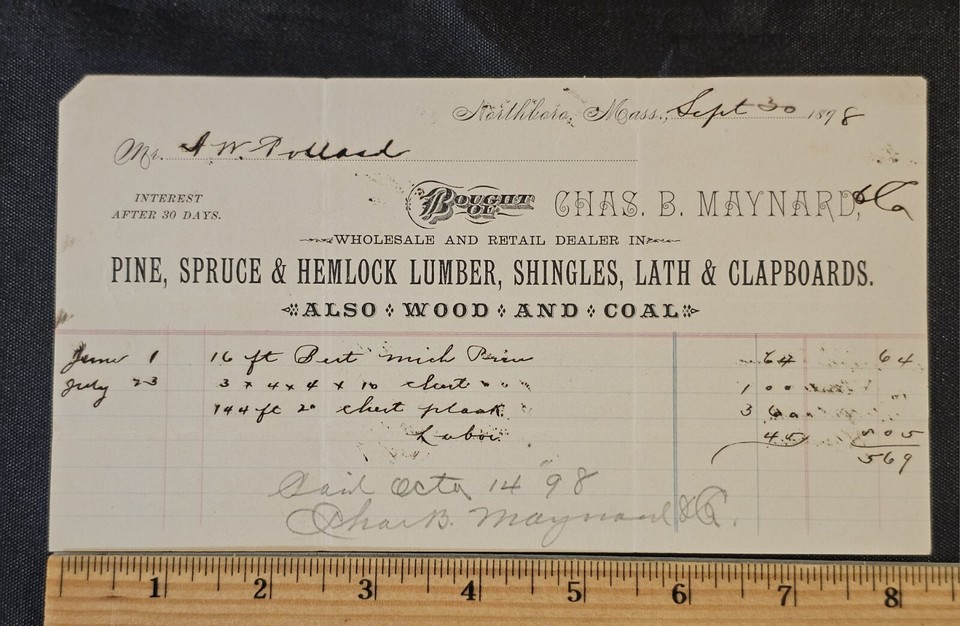 Northboro, Mass., Sept 30 1898
Mr. A W. Pollard
INTEREST
AFTER 30 DAYS.
BOUGHT OF CHAS. B. MAYNARD, & Co
WHOLESALE AND RETAIL DEALER IN
PINE, SPRUCE & HEMLOCK LUMBER, SHINGLES, LATH & CLAPBOARDS.
ALSO WOOD AND COAL
June 1 16 ft Best Mich Pine 64 64
July 23 3 x 4 x 4 x 10 chest " " " 1 00
144 ft 2" chest plank 3 60
Labor 45 505
569
Paid Octo 14 "98
Chas B. Maynard & Co.
1 2 3 4 5 6 7 8